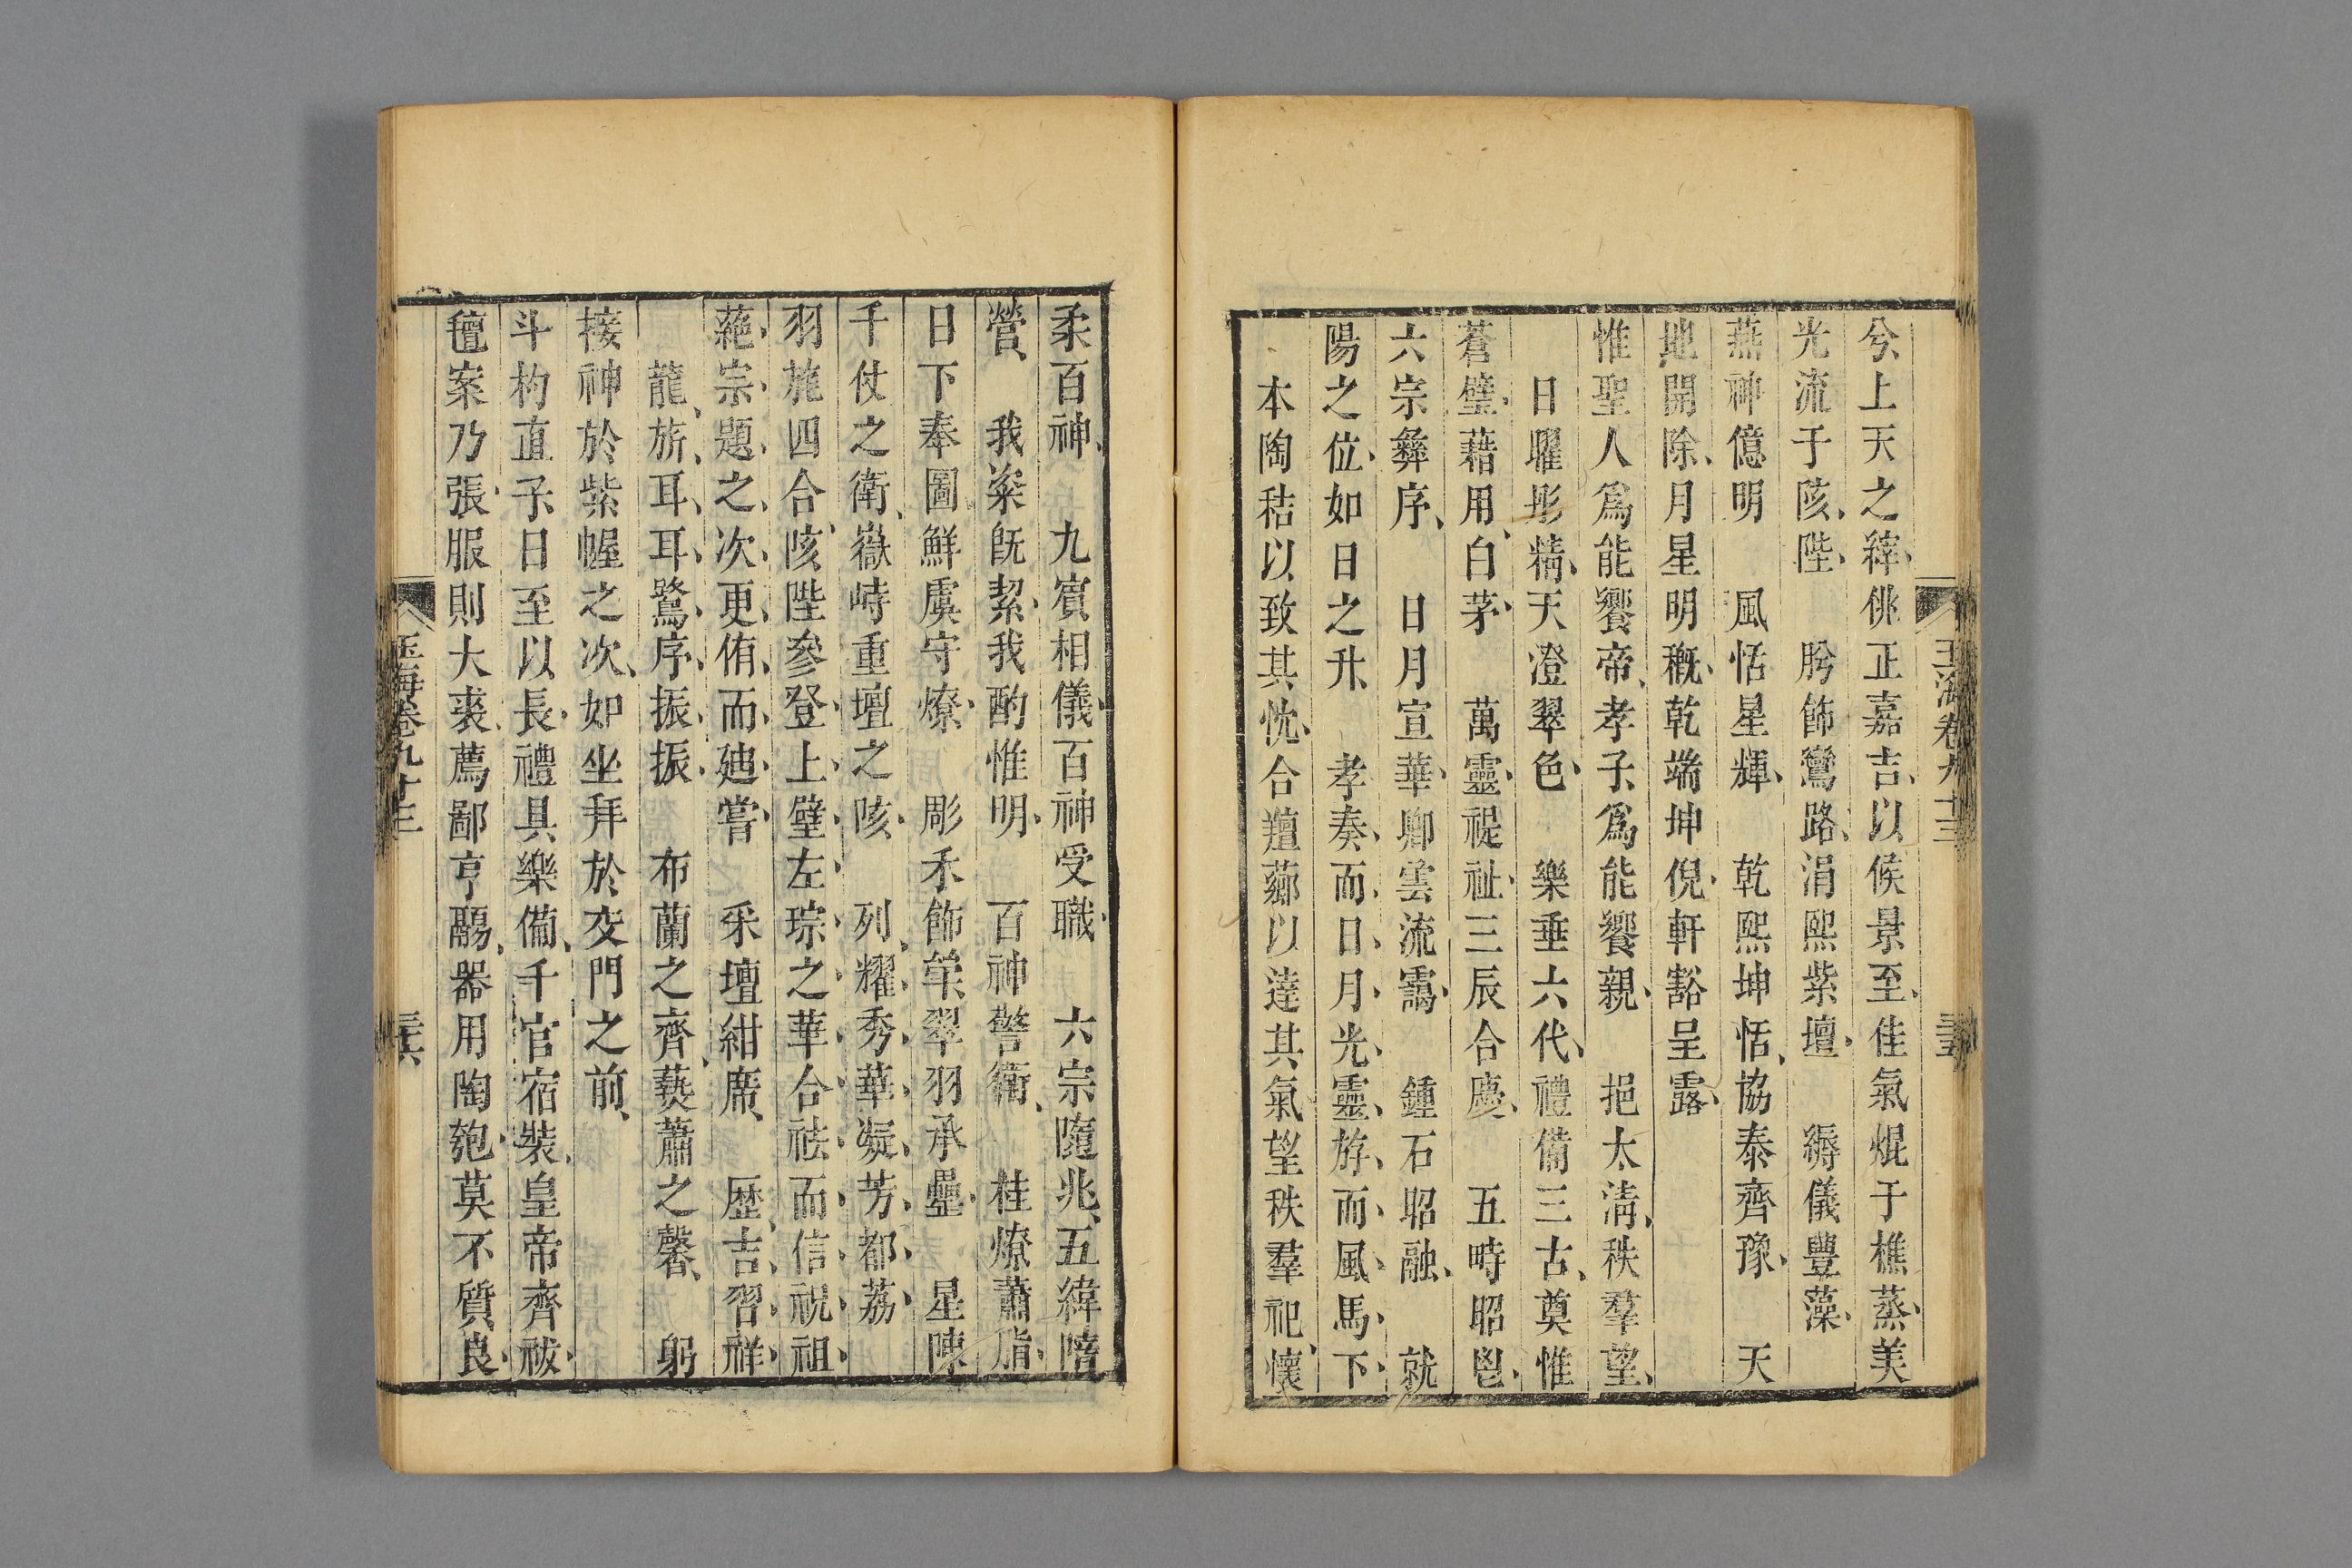 兮上天之縡佻正嘉吉以候景至佳氣焜于樵蒸美
光流于陔陛　肹飾鸞路涓熙紫壇　縟儀豐藻
燕神億明　風恬星輝　乾熙坤恬協泰齊豫　天
地開除月星明穊乾端坤倪軒豁呈露
惟聖人爲能饗帝孝子爲能饗親　挹太淸秩羣望
日躍彤精天澄翠色　樂垂六代禮備三古奠惟
蒼璧藉用白茅　萬靈禔祉三辰合慶　五時昭鬯
六宗彝序　日月宣華卿雲流靄　鍾石昭融　就
陽之位如日之升　孝奏而日月光靈斿而風馬下
本陶秸以致其忱合羶薌以達其氣望秩羣祀懷
玉海卷九十三
柔百神　九賓相儀百神受職　六宗隨兆五緯陪
營　我粢旣絜我酌惟明　百神警衞　桂燎蕭脂
日下奉圖鮮虞守燎　彫禾飾斝翠羽承罍　星陳
千仗之衛嶽峙重壇之陔　列燿秀華凝芳都荔
羽旄四合陔陛參登上璧左琮之華合祛而信祝祖
蕝宗題之次更侑而廸嘗　采壇紺席　歷吉習祥
龍旂耳耳鷺序振振　布蘭之齊爇蕭之馨　躬
接神於紫幄之次如坐拜於交門之前
斗杓直子日至以長禮具樂備千官宿裝皇帝齊祓
氊案乃張服則大裘薦鬷亨鬺器用陶匏莫不質良
玉海卷九十三